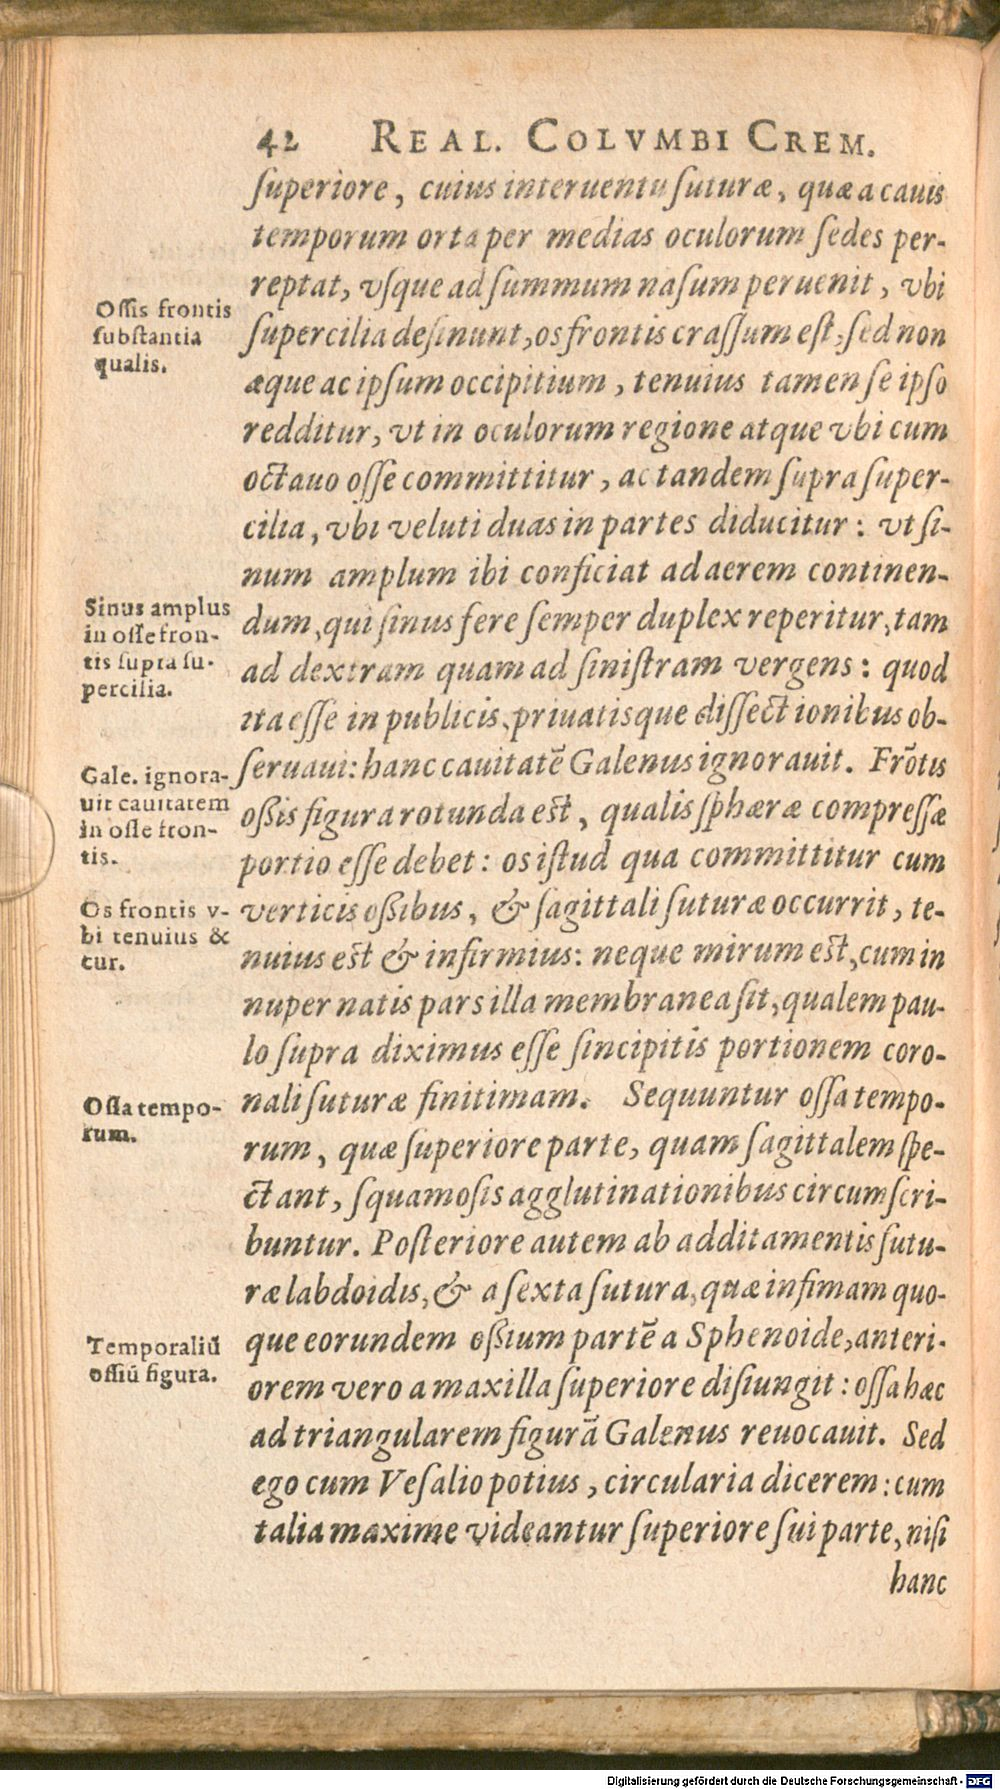 42 REAL. COLVMBI CREM.
ſuperiore, cuius interuentu ſuturæ, quæ a cauis
temporum orta per medias oculorum ſedes per-
reptat, vſque ad ſummum naſum peruenit, vbi
Oſſis frontis
ſubſtantia
qualis.
ſupercilia deſinunt, os frontis craſſum eſt, ſed non
æque ac ipſum occipitium, tenuius tamen ſe ipſo
redditur, vt in oculorum regione atque vbi cum
octauo oſſe committitur, ac tandem ſupra ſuper-
cilia, vbi veluti duas in partes diducitur: vt ſi-
num amplum ibi conficiat ad aerem continen-
Sinus amplus
in oſſe fron-
tis ſupra ſu-
percilia.
dum, qui ſinus fere ſemper duplex reperitur, tam
ad dextram quam ad ſiniſtram vergens: quod
ita eſſe in publicis, priuatisque diſſectionibus ob-
Gale. ignora-
uit cauitatem
in oſſe fron-
tis.
ſeruaui: hanc cauitatē Galenus ignorauit. Frōtis
oßis figura rotunda eſt, qualis ſphæræ compreſſæ
portio eſſe debet: os iſtud qua committitur cum
Os frontis v-
bi tenuius &
cur.
verticis oßibus, & ſagittali ſuturæ occurrit, te-
nuius eſt & infirmius: neque mirum eſt, cum in
nuper natis pars illa membranea ſit, qualem pau-
lo ſupra diximus eſſe ſincipitis portionem coro-
Oſſa tempo-
rum.
nali ſuturæ finitimam. Sequuntur oſſa tempo-
rum, quæ ſuperiore parte, quam ſagittalem ſpe-
ctant, ſquamoſis agglutinationibus circumſcri-
buntur. Poſteriore autem ab additamentis ſutu-
ræ labdoidis, & a ſexta ſutura, quæ infimam quo-
Temporaliū
oſſiū figura.
que eorundem oßium partē a Sphenoide, anteri-
orem vero a maxilla ſuperiore diſiungit: oſſa hæc
ad triangularem figurā Galenus reuocauit. Sed
ego cum Veſalio potius, circularia dicerem: cum
talia maxime videantur ſuperiore ſui parte, niſi
hanc
Digitalisierung gefördert durch die Deutsche Forschungsgemeinschaft - DFG